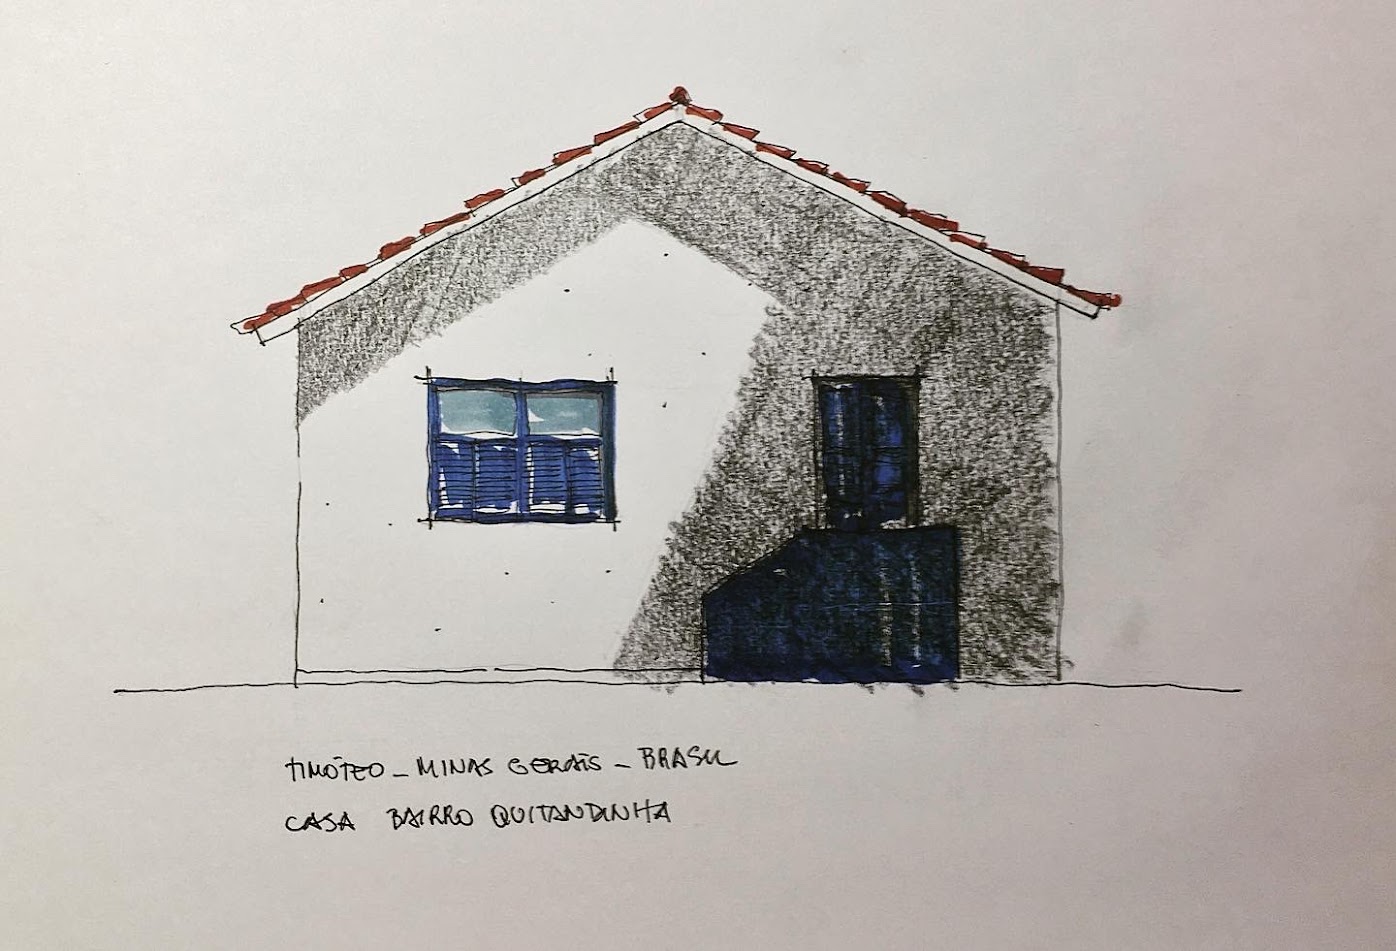 TIMÓTEO - MINAS GERAIS - BRASIL
CASA BAIRRO QUITANDINHA